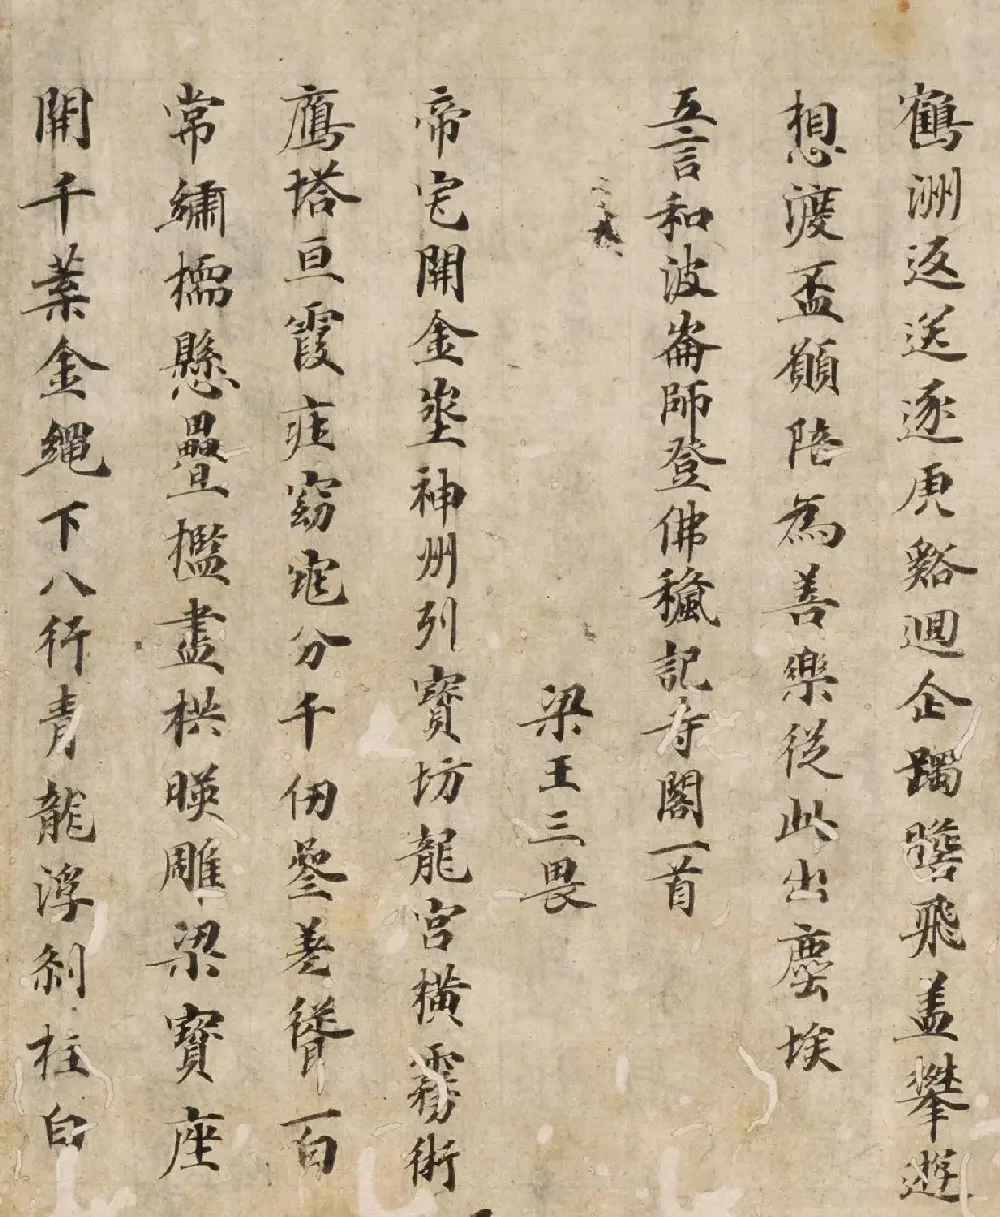 鶴洲返送逐庾谿迴企躅瞻飛盖攀遊
想渡盃願陪為善樂從此出塵埃
五言和波崙師登佛窟記寺閣一首
梁王三畏
帝宅開金埊神州列寳坊龍宮橫霧術
鴈塔亘霞疘窈窕分千仞叅差聳一百
常繡栭懸疊檻盡栱暎雕梁寳座
開千葉金繩下八行青龍浮剎柱白